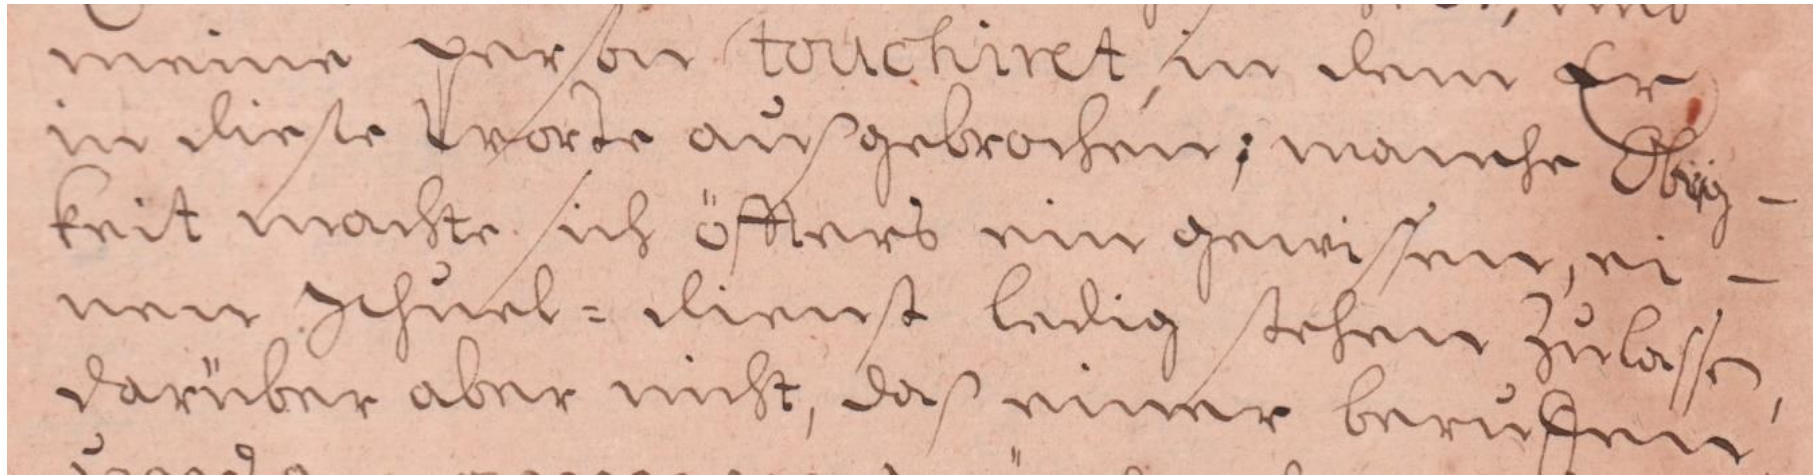 meine person touchiret, in dem Er
in diese Worte außgebrochen; manche Obrig-
keit machte sich öffters ein gewissen, ei-
nen Schuel-dienst ledig stehen zulassen,
darüber aber nicht, das einer beruffen